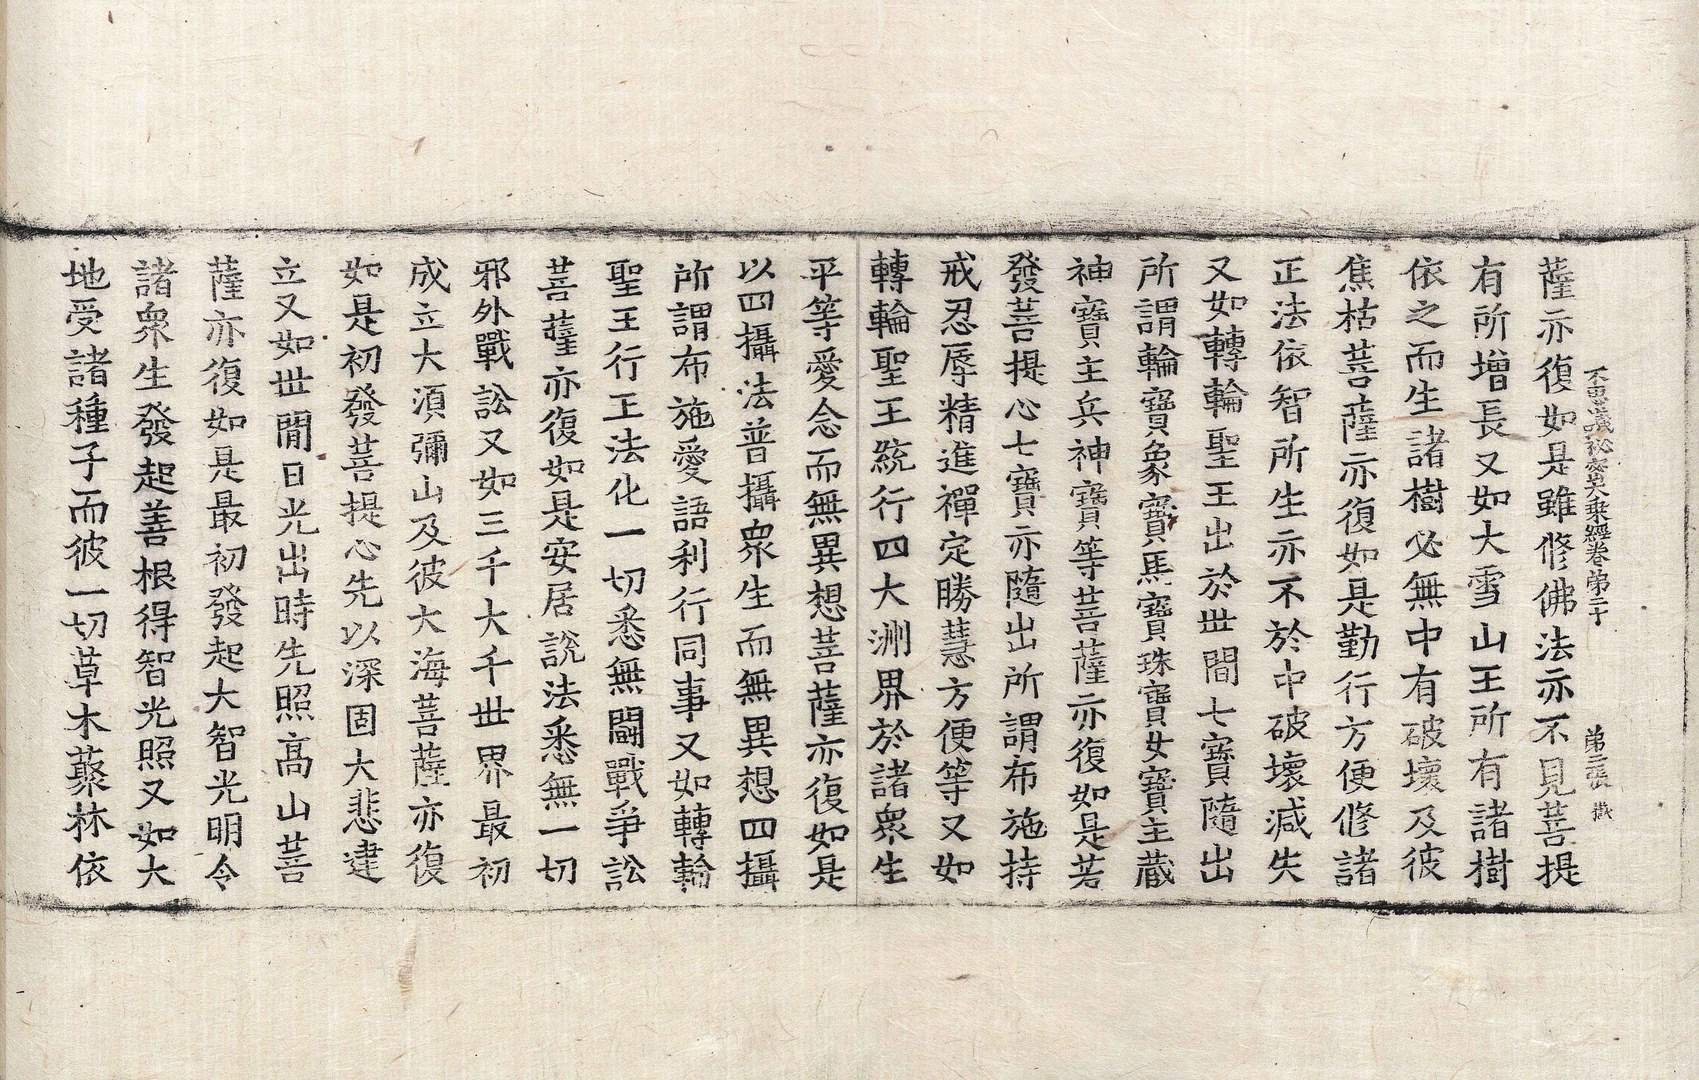 不思議祕密大乘經卷第二十 第二張 㪅
薩亦復如是雖修佛法亦不見菩提
有所增長又如大雪山王所有諸樹
依之而生諸樹必無中有破壞及彼
焦枯菩薩亦復如是勤行方便修諸
正法依智所生亦不於中破壞減失
又如轉輪聖王出於世間七寶隨出
所謂輪寶象寶馬寶珠寶女寶主藏
神寶主兵神寶等菩薩亦復如是若
發菩提心七寶亦隨出所謂布施持
戒忍辱精進禪定勝慧方便等又如
轉輪聖王統行四大洲界於諸眾生
平等愛念而無異想菩薩亦復如是
以四攝法普攝眾生而無異想四攝
所謂布施愛語利行同事又如轉輪
聖王行正法化一切悉無鬪戰爭訟
菩薩亦復如是安居說法悉無一切
邪外戰訟又如三千大千世界最初
成立大須彌山及彼大海菩薩亦復
如是初發菩提心先以深固大悲建
立又如世間日光出時先照高山菩
薩亦復如是最初發起大智光明令
諸眾生發起善根得智光照又如大
地受諸種子而彼一切草木藂林依